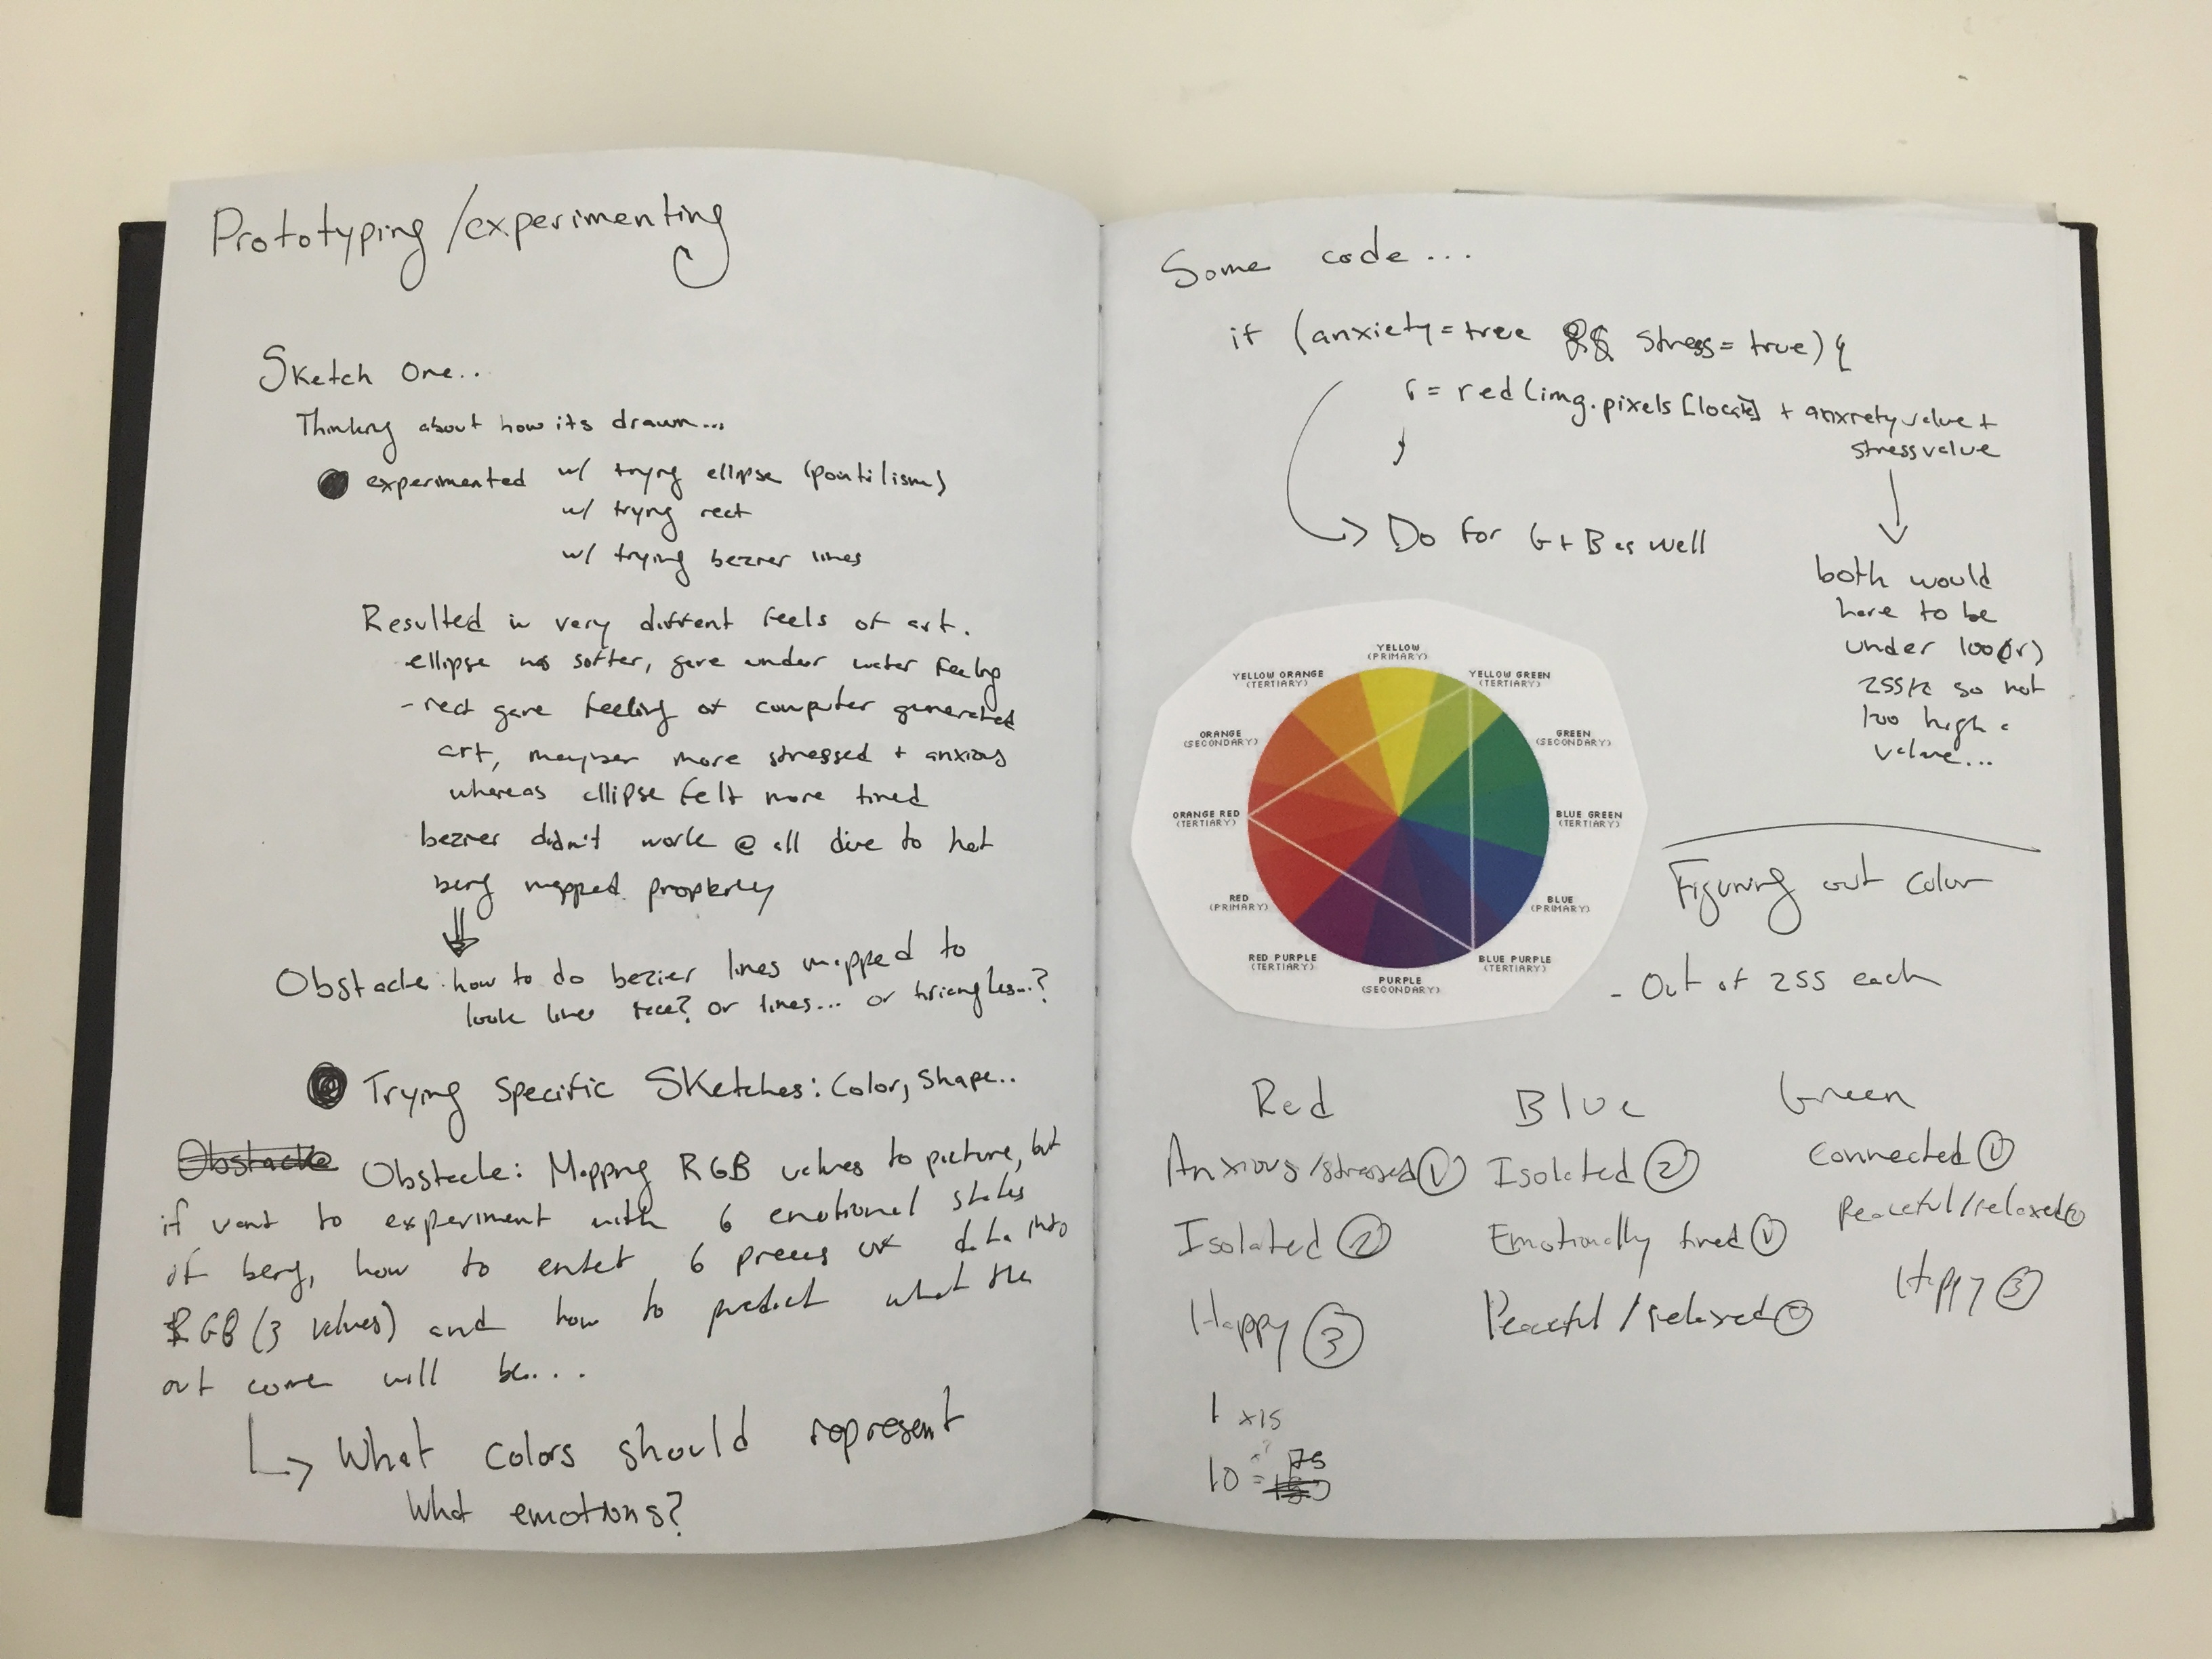 Prototyping/experimenting
Sketch One..
Thinking about how its drawn...
experimented w/ tryng ellipse (pointilism)
w/ tryng rect
w/ trying bezier lines
Resulted in very diffrent feels of art.
ellipse was softer, gave under water feeling
- rect gave feeling of computer generated
art, more stressed + anxious
whereas ellipse felt more tired
bezier didn't work @ all due to not
being mapped properly
Obstacle: how to do bezier lines mapped to
look like face? or lines... or triangles..?
Trying specific sketches: Color, Shape..
Obstacle
Obstacle: Mapping RGB values to picture, but
if want to experiment with 6 emotional states
of being, how to enter 6 pieces of data into
RGB (3 values) and how to predict what the
out come will be...
What colors should represent
what emotions?
Some code...
if (anxiety = true && stress = true) {
r = red(img.pixels[locate] + anxiety value +
stress value
}
Do for G + B as well
both would
have to be
under 100(or)
255/2 so not
too high a
value...
YELLOW
(PRIMARY)
YELLOW ORANGE
(TERTIARY)
YELLOW GREEN
(TERTIARY)
ORANGE
(SECONDARY)
GREEN
(SECONDARY)
ORANGE RED
(TERTIARY)
BLUE GREEN
(TERTIARY)
RED
(PRIMARY)
BLUE
(PRIMARY)
RED PURPLE
(TERTIARY)
BLUE PURPLE
(TERTIARY)
PURPLE
(SECONDARY)
Figuring out color
- Out of 255 each
Red Blue Green
Anxious/stressed 1 Isolated 2 Connected 1
Isolated 2 Emotionally tired 1 Peaceful/relaxed 2
Happy 3 Peaceful/relaxed Happy 3
1 x15
10 = 75